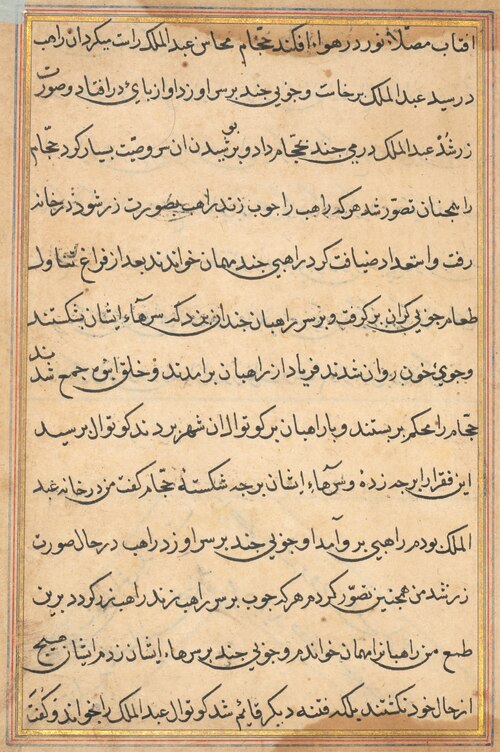 افتاب مصلّا نور در هوا افکند حجّام محاسن عبد الملک راست میکرد ان راهب
در رسید عبد الملک برخاست و چوبی چند بر سر او زد او از پای در افتاد و صورت
زر شد عبد الملک درمی چند بحجّام داد و بر پوشیدن ان سر وصیّت بسیار کرد حجّام
را همچنان تصوّر شد هر که راهب را چوب زند راهب بصورت زر شود در خانه
رفت و استعداد ضیافت کرد راهبی چند مهمان خواندند بعد از فراغ تناول
طعام چوبی کران بر کرفت و بر سر راهبان چندان بزد که سرهاء ایشان بشکستند
و جوی خون روان شدند فریاد از راهبان برامدند و خلق انبوه جمع شدند
حجّام را محکم بر بستند و با راهبان بر کوتوال ان شهر بردند کوتوال پرسید
این فقرا را بر چه زده و سرهاء ایشان بر چه شکسته حجّام کفت من در خانه عبد
الملک بودم راهبی بر وی آمد او چوبی چند بر سر او زد راهب در حال صورت
زر شد من همچنین تصوّر کردم هر که چوب بر سر راهب زند راهب زر کردد برین
طمع من راهبانرا مهمان خواندم و چوبی چند بر سرهاء ایشان زدم ایشان هیچ
از حال خود نکشتند بلکه فتنه دیکر قائم شد کوتوال عبد الملک را بخواند و کفت